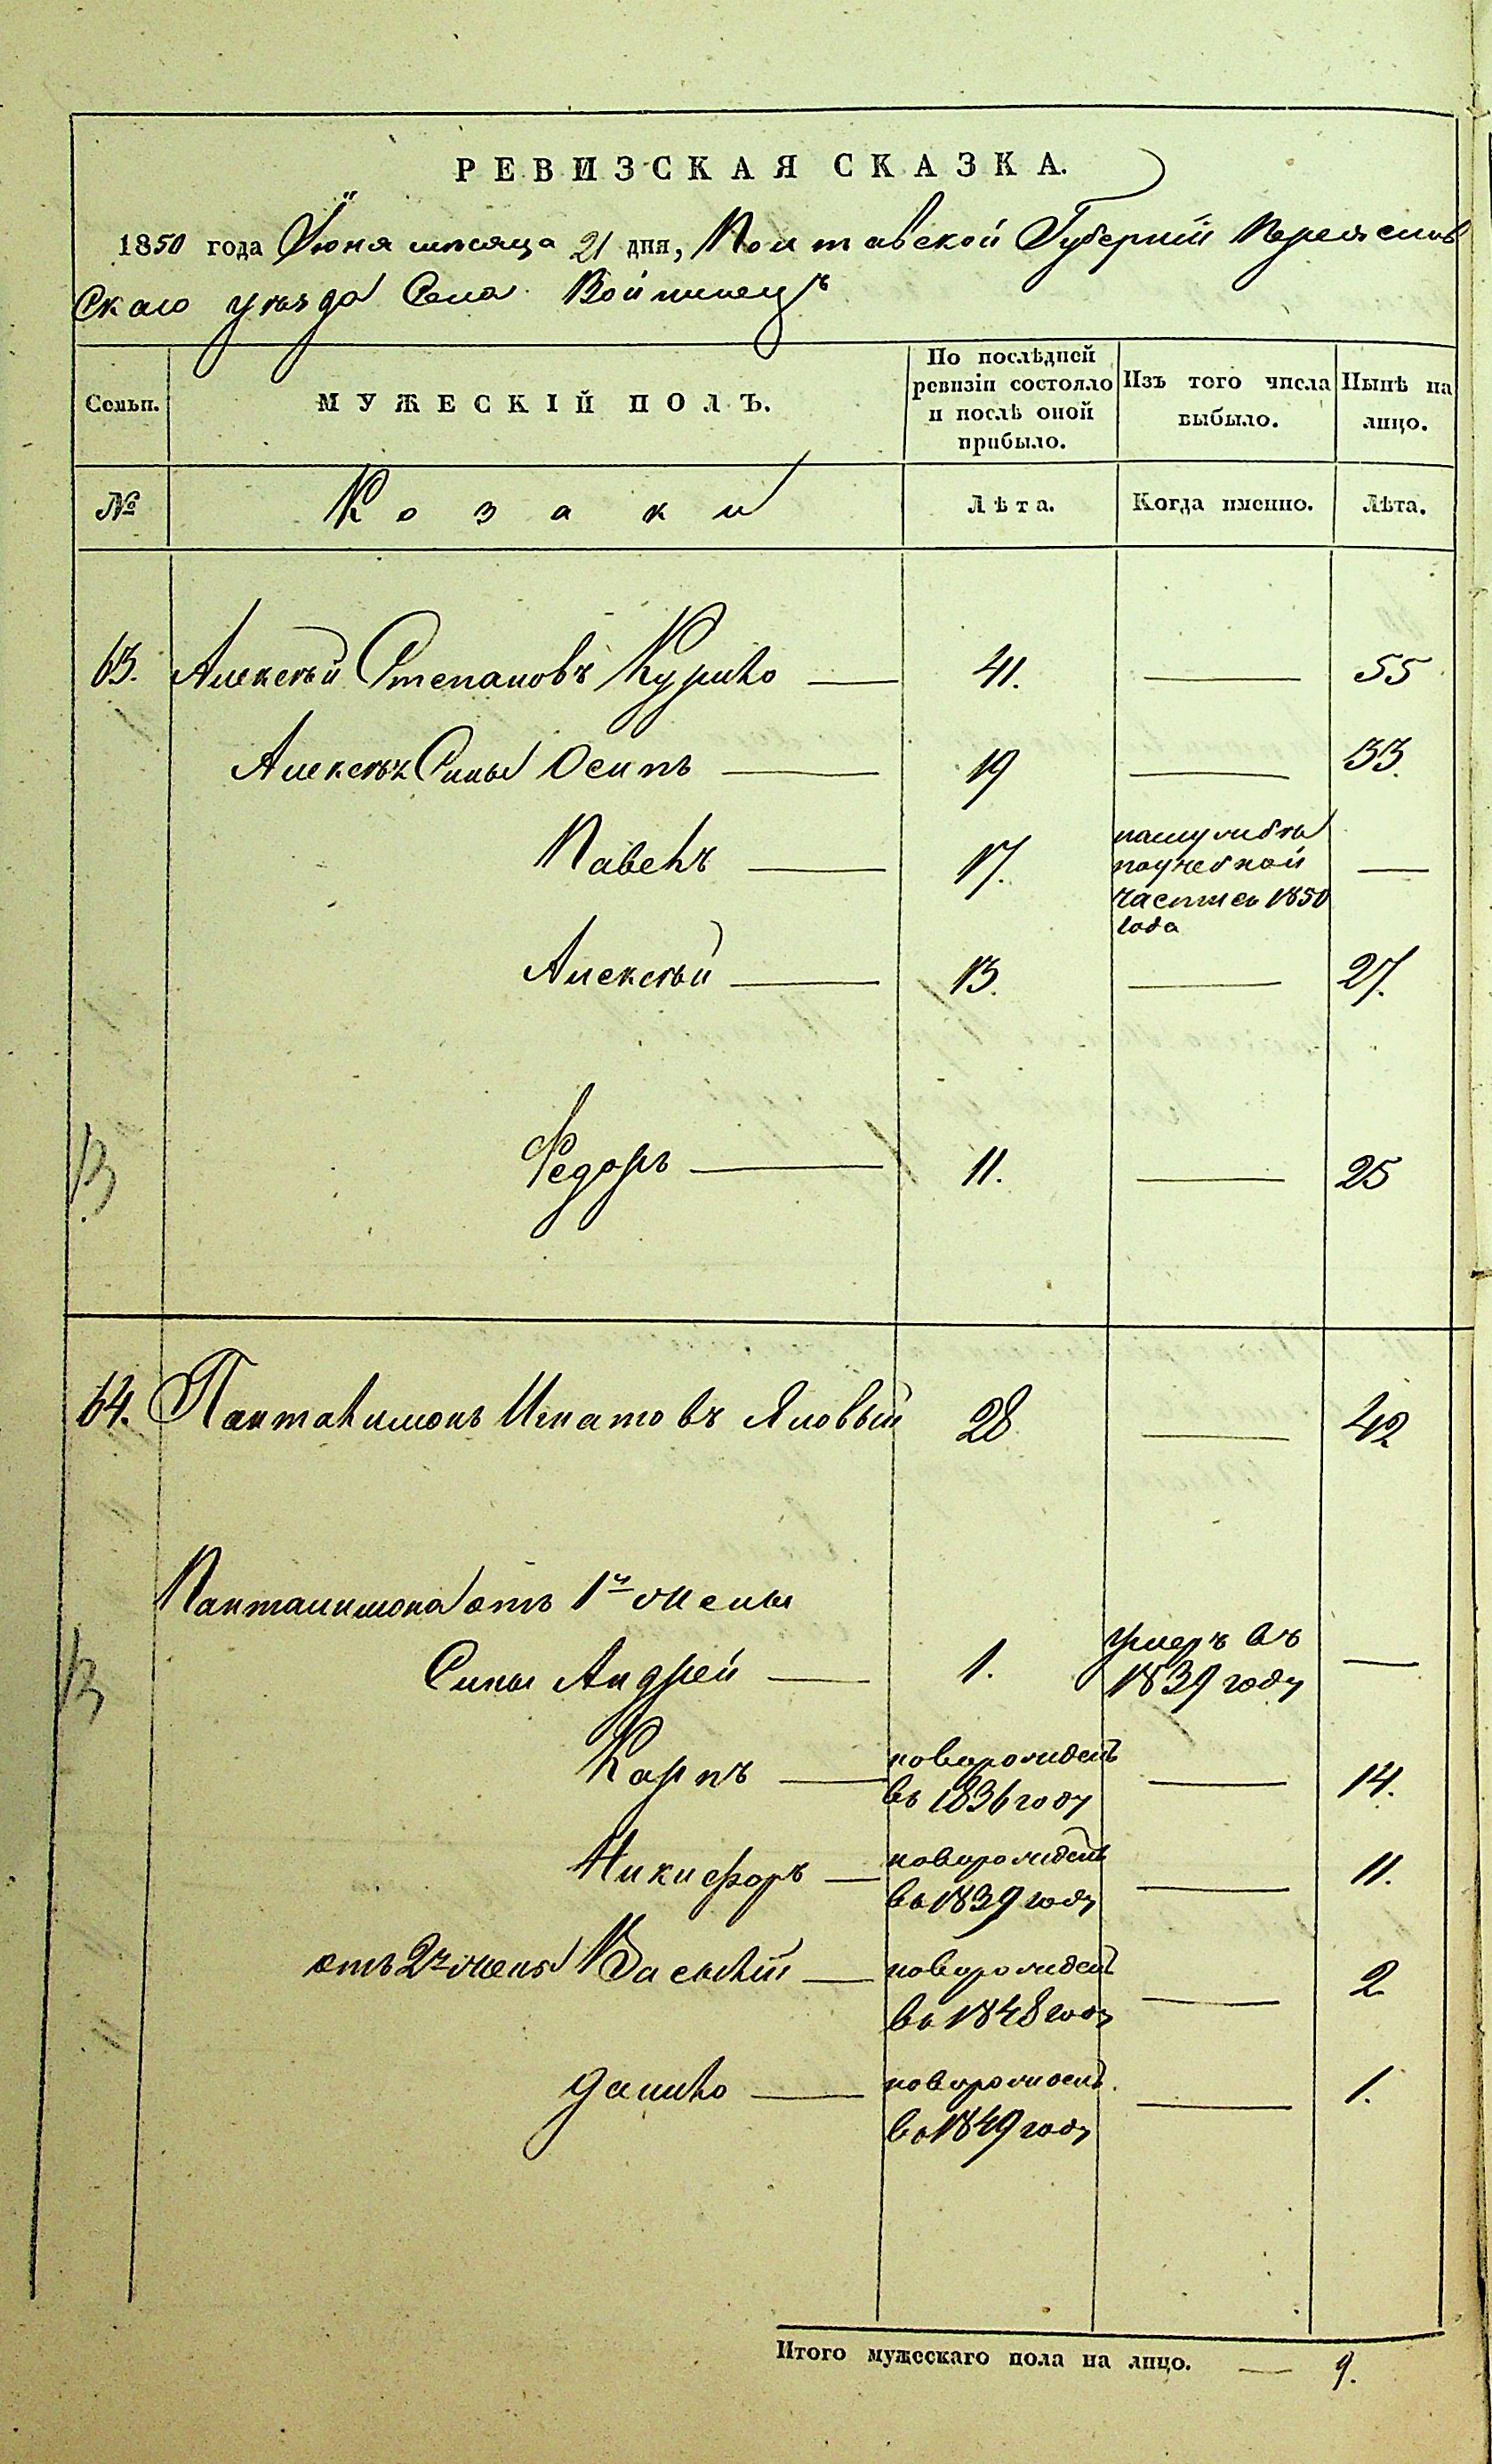 РЕВИЗСКАЯ СКАЗКА.
1850 года Іюня мѣсяца 21 дня, Полтавской Губерніи Переяслав
Скаго уѣзда Села Войнинецъ
Семьи.
МУЖЕСКІЙ ПОЛЪ.
По послѣдней
ревизіи состояло
и послѣ оной
прибыло.
Изъ того числа
выбыло.
Нынѣ на
лицо.
№
Козаки
Лѣта.
Когда именно.
Лѣта.
63. Алексѣй Степановъ Курило — 41. — 55
Алексѣя Сыны Осипъ — 19 — 33.
Павелъ — 17. —
на службѣ
по учебной
части съ 1850
года
Алексѣй — 13. — 27.
Федоръ — 11. — 25
13
64. Панталимонъ Игнатовъ Яловый 28 — 42
Панталимона отъ 1й жены
Сыны Андрей — 1. умеръ въ —
1839 году
13
Карпъ — новорожденъ — 14.
въ 1836 году
Никифоръ — новорожденъ — 11.
въ 1839 году
отъ 2й жены Василій — новорожденъ — 2
въ 1848 году
Данило — новорожденъ — 1.
въ 1849 году
Итого мужескаго пола на лицо. — 9.